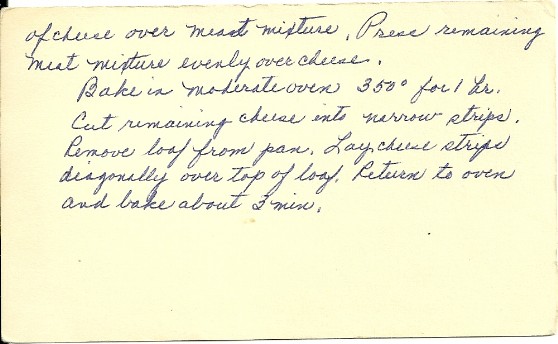 of cheese over meat mixture. Press remaining
meat mixture evenly over cheese.
Bake in moderate oven 350° for 1 hr.
Cut remaining cheese into narrow strips.
Remove loaf from pan. Lay cheese strips
diagonally over top of loaf. Return to oven
and bake about 3 min.